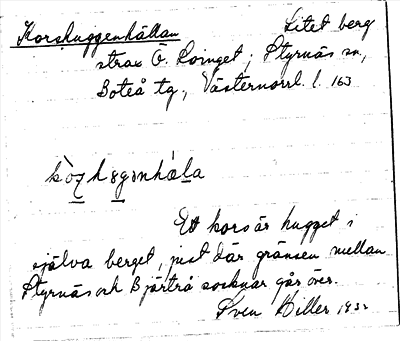 Korshuggenhällan Litet berg
strax Ö. Roinget; Styrnäs sn,
Boteå tg, Västernorrl. l. 163
Ett kors är hugget i
själva berget, just där gränsen mellan
Styrnäs och Bjärtrå socknar går över.
Sven Hiller 1932